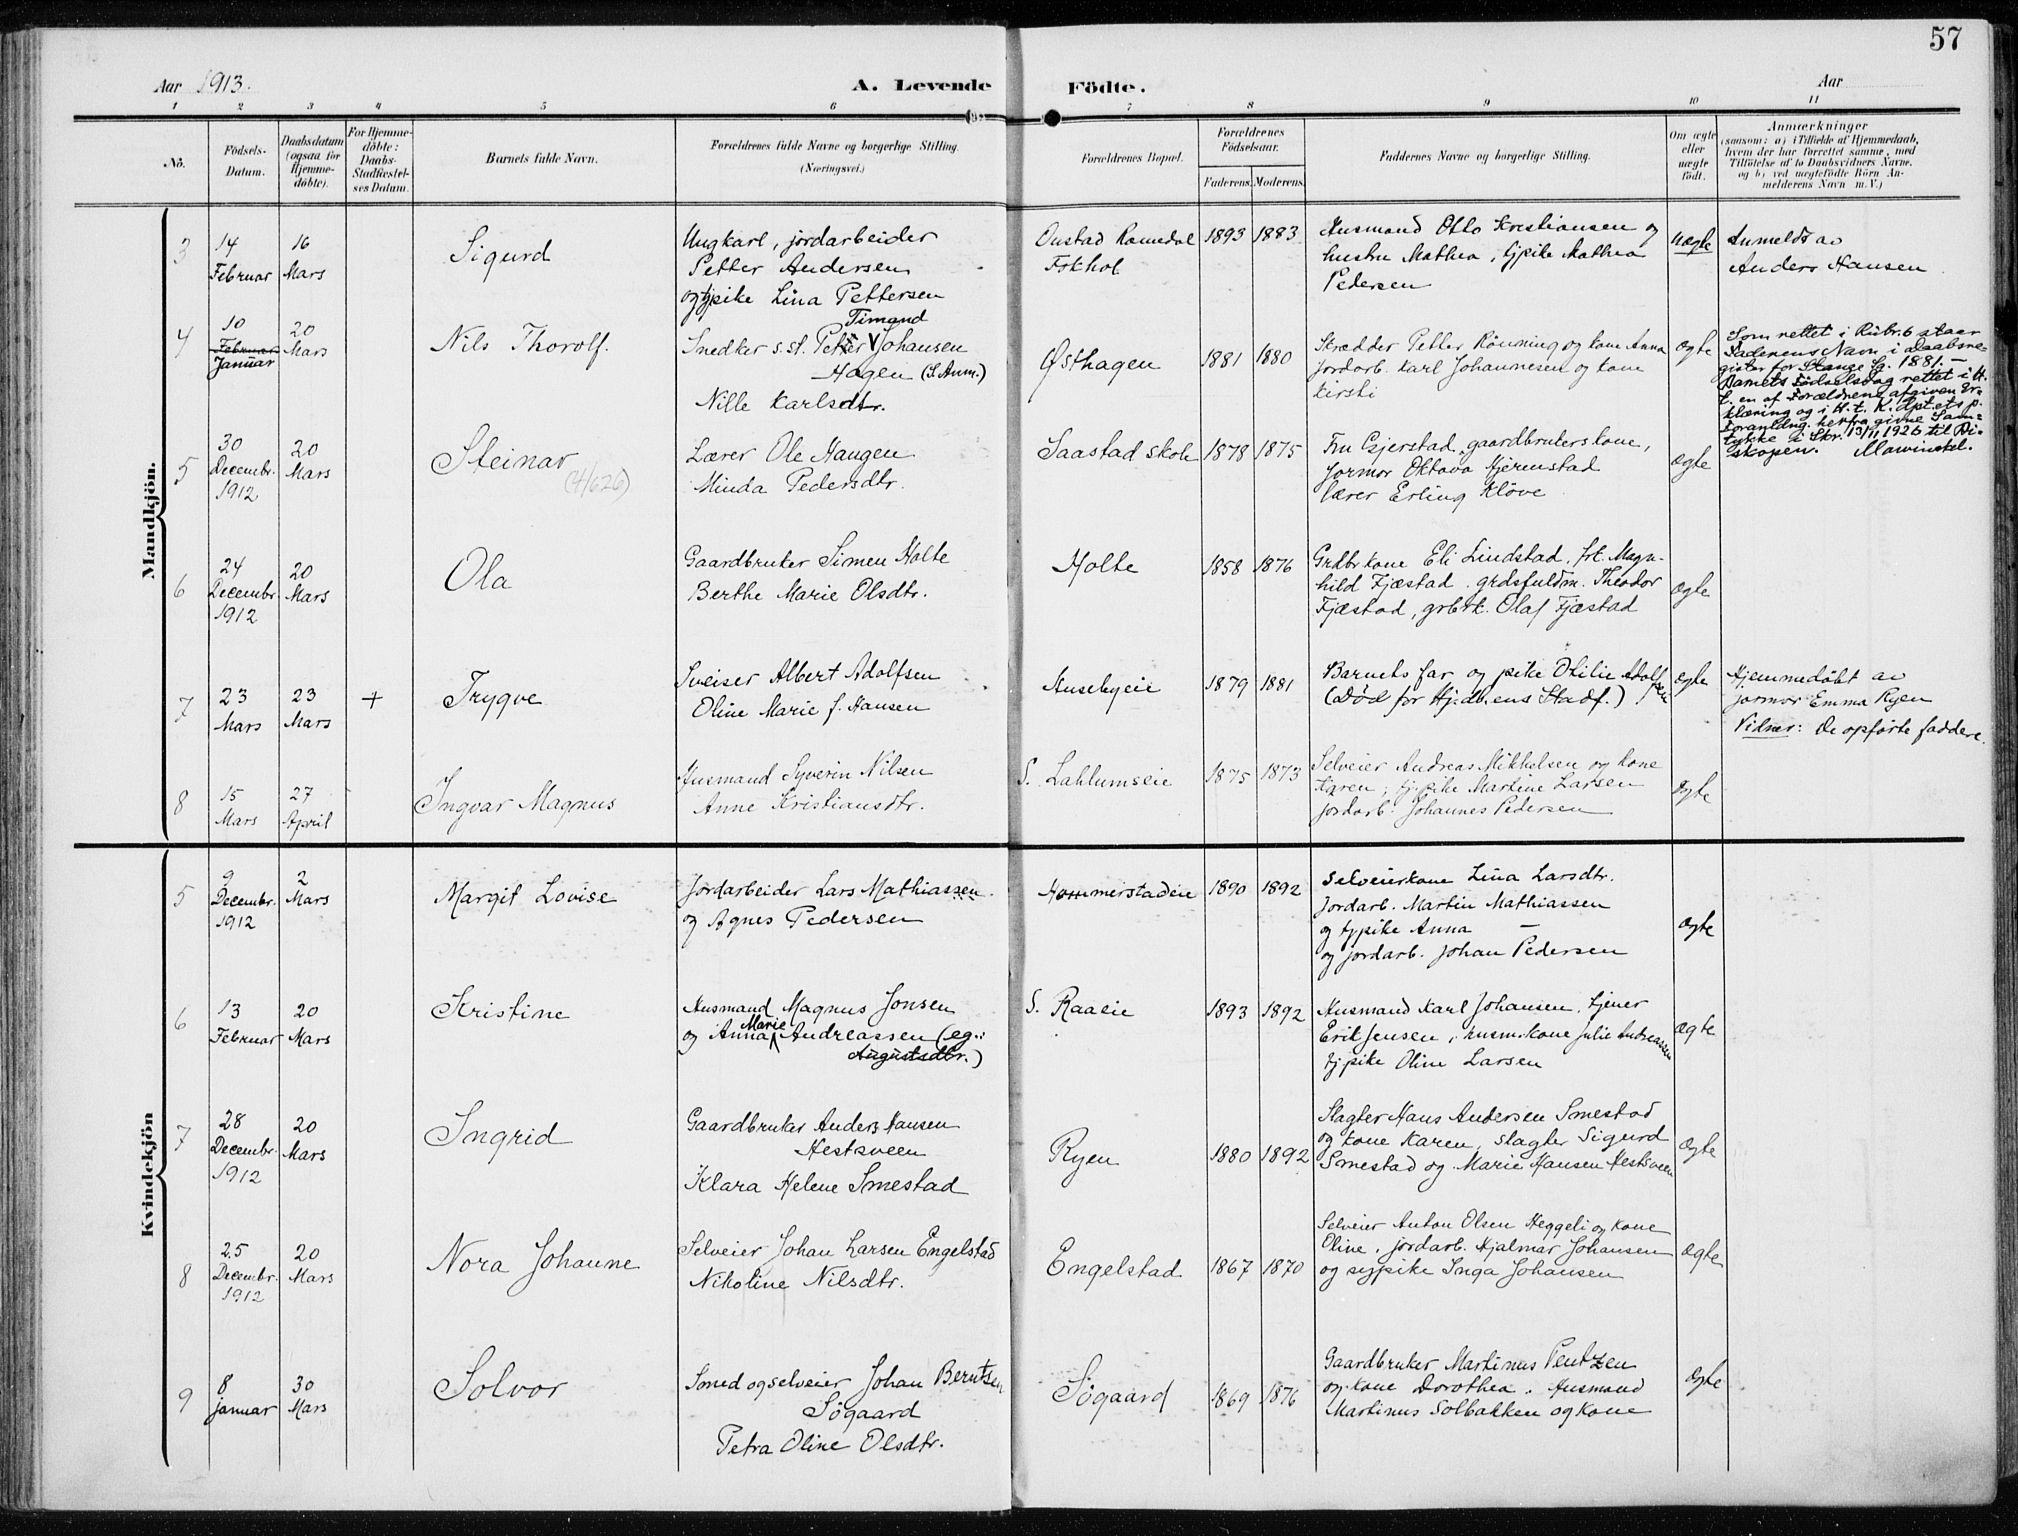 57
Aar 1913.
A. Levende Födte.
Aar
1 2 3 4 5 6 7 8 9 10 11
Nö.
Födsels-Datum.
Daabsdatum (ogsaa for Hjemme-döbte).
For Hjemme-döbte: Daabs-Stadfæstel-ses Datum.
Barnets fulde Navn.
Forældrenes fulde Navne og borgerlige Stilling. (Næringsvei.)
Forældrenes Bopæl.
Forældrenes Födselsaar.
Faderens. Moderens.
Faddernes Navne og borgerlige Stilling.
Om ægte eller uægte födt.
Anmærkninger
(saasom: a) i Tilfælde af Hjemmedaab, hvem der har forrettet samme, med Tilföielse af to Daabsvidners Navne, og b) ved uægtefödte Börn An-melderens Navn m. V.)
Mandkjön.
3
14 Februar
16 Mars
Sigurd
Ungkarl, jordarbeider
Petter Andersen
og tjpike Lina Pettersen
Onstad Romedal
Fokhol
1893 1883
Husmand Otto Kristiansen og
hustru Mathea, tjpike Mathea
Pedersen
Uægte
Anmeldt av
Anders Hansen
4
10 Februar Januar
20 Mars
Nils Thorolf.
Timand
Snedker s.st. Petter Johansen
Hagen (S. Anm.)
Nille Karlsdtr.
Østhagen
1881 1880
Skrædder Petter Rönning og kone Anna
Jordarb. Karl Johannesen og kone
Kirsti
Ægte
Som rettet i Rubr. 6 staar
Faderens Navn i Daabsre-
gister for Stange Sg. 1881. —
Barnets Födselsdag rettet i H.
t. en af Forældrene afgiven Er-
klæring og i H. t. K. Dpt.ets p.
Foranldng. herfra givne Sam-
tykke i Skr. 13/11 1926 til Bi-
skopen.
5
30 Decembr. 1912
20 Mars
Steinar
Lærer Ole Haugen
Minda Pedersdtr.
Saastad skole
1878 1875
Fru Gjerstad, gaardbrukers kone,
Jormor Oktava Hjermstad
lærer Erling Klöve
Ægte
6
24 Decembr. 1912
20 Mars
Ola
Gaardbruker Simen Holte
Berthe Marie Olsdtr.
Holte
1858 1876
Grdbr kone Eli Lindstad, frk. Magn-
hild Fjæstad, grdsfuldm. Theodor
Fjæstad, grbrk. Olaf Fjæstad
Ægte
7
23 Mars
23 Mars
+
Trygve
Sveiser Albert Adolfsen
Oline Marie f. Hansen
Husebyeie
1879 1881
Barnets far og pike Otilie Adolfsen
(Död för Hj.dbens Stadf.)
Ægte
Hjemmedöbt av
jormor Emma Ryen
Vidner: De opførte faddere.
8
15 Mars
27 April
Ingvar Magnus
Husmand Syverin Nilsen
Anne Kristiansdtr.
S. Lahlumseie
1875 1873
Selveier Andreas Mikkelsen og kone
Karen, tjpike Martine Larsen
jordarb. Johannes Pedersen
Ægte
Kvindekjön
5
9 Decembr. 1912
2 Mars
Margit Lovise
Jordarbeider Lars Mathiassen
og Agnes Pedersen
Hommerstadeie
1890 1892
Selveierkone Lina Larsdtr.
Jordarb. Martin Mathiassen
og tjpike Anna —
og jordarb. Johan Pedersen
Ægte
6
13 Februar
20 Mars
Kristine
Husmand Magnus Jonsen
og Anna Marie Andreassen (eg.:
Augustsdtr.)
S. Raaeie
1893 1892
Husmand Karl Johansen, tjener
Erik Jensen, husm.kone Julie Andreassen
tjpike Oline Larsen
Ægte
7
28 Decembr. 1912
20 Mars
Ingrid
Gaardbruker Anders Hansen
Hestsveen
Klara Helene Smestad
Ryen
1880 1892
Slagter Hans Andersen Smestad
og kone Karen, slagter Sigurd
Smestad og Marie Hansen Hestsveen
Ægte
8
25 Decembr. 1912
20 Mars
Nora Johanne
Selveier Johan Larsen Engelstad
Nikoline Nilsdtr.
Engelstad
1867 1870
Selveier Anton Olsen Heggeli og kone
Oline, jordarb. Hjalmar Johansen
og sypike Inga Johansen
Ægte
9
8 Januar
30 Mars
Solvor
Smed og selveier Johan Berntsen
Sögaard
Petra Oline Olsdtr.
Sögaard
1869 1876
Gaardbruker Martinus Pentzen
og kone Dorothea. Husmand
Martinus Solbakken og kone
Ægte